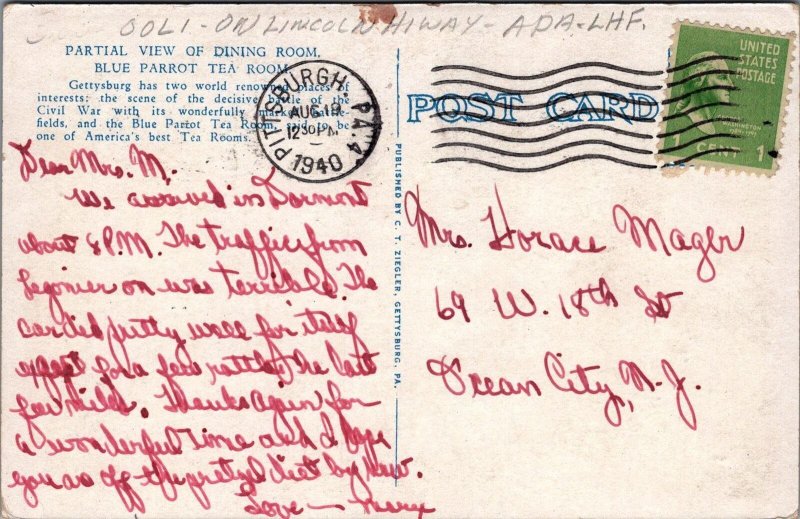 OOLI - ON LINCOLN HIWAY - ADA - LHF.
PARTIAL VIEW OF DINING ROOM,
BLUE PARROT TEA ROOM
Gettysburg has two world renowned places of
interests: the scene of the decisive battle of the
Civil War with its wonderfully marked battle-
fields, and the Blue Parrot Tea Room, said to be
one of America's best Tea Rooms.
PITTSBURGH, PA. 4
AUG 14
12 30 PM
1940
POST CARD
UNITED
STATES
POSTAGE
1 CENT 1
Dear Mrs. M.
We arrived in Dormont
about 8 P.M. The traffic from
Legonier on was terrible. The
car did pretty well for itself
except for a few rattles the last
few miles. Thanks again for
a wonderful time and I hope
you're off the pretzel diet by now.
Love — Mary
PUBLISHED BY C. T. ZIEGLER, GETTYSBURG, PA.
Mrs. Horace Mager
69 W. 18th St
Ocean City, N.J.